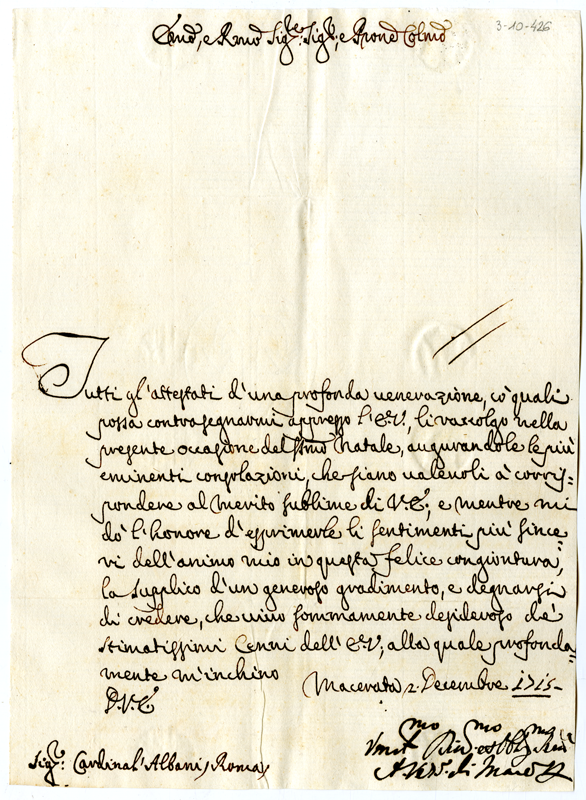 3-10-426
Emo, e Rmo Sigre: Sigr, e Prone Colmo
Tutti gl'attestati d'una profonda venerazione, cò quali
possa contrasegnarmi appresso l'E.V., li raccolgo nella
presente occasione del Stmo Natale, augurandole le più
eminenti consolazioni, che siano valevoli à corris=
pondere al merito sublime di V.E.; e mentre mi
dò l'honore d'esprimerle li sentimenti più since
ri dell'animo mio in questa felice congiontura,
la supplico d'un generoso gradimento, e degnarsi
di credere, che vivo sommamente desideroso de'
stimatissimi Cenni dell'E.V., alla quale profonda=
mente m'inchino Macerata 2. Decembre 1715
D.V.E.
Sigr: Cardinal'Albani, Roma
Umo Dmo et Obbmo
di Macta